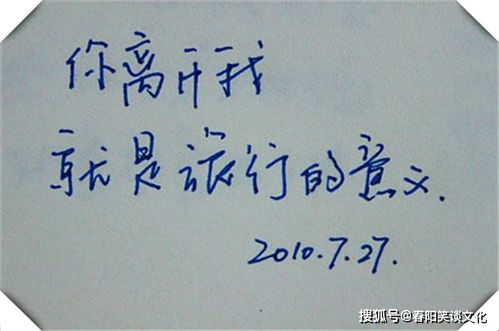 你离开我
就是旅行的意义.
2010.7.27.
搜狐号@春阳笑谈文化